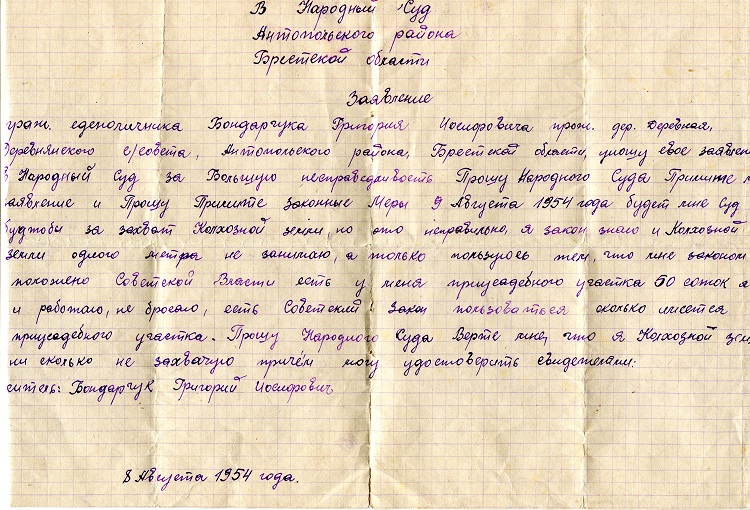 В Народный Суд
Антопольского района
Брестской области
Заявление
граж. еденоличника Бондарчука Григория Иосифовича прож. дер. Деревная,
Деревнянского с/совета, Антопольского района, Брестской области, уношу свое заявлен
в Народный Суд за Большую несправедливость Прошу Народного Суда Примите м
заявление и Прошу Примите Законные Меры 9 Августа 1954 года будет мне Суд
будтобы за захват Колхозной земли, но это неправильно, я закон знаю и Колхозной
земли одного метра не занимаю, а только пользуюсь тем, что мне законом
положено Советской Власти есть у меня приусадебного участка 50 соток я
и работаю, не бросаю, есть Советский Закон пользоваться сколько имеется
приусадебного участка. Прошу Народного Суда Верте мне, что я Колхозной зем
ни сколько не захвачую причём могу удостоверить свидетелами:
ситель: Бондарчук Григорий Иосифович
8 Августа 1954 года.